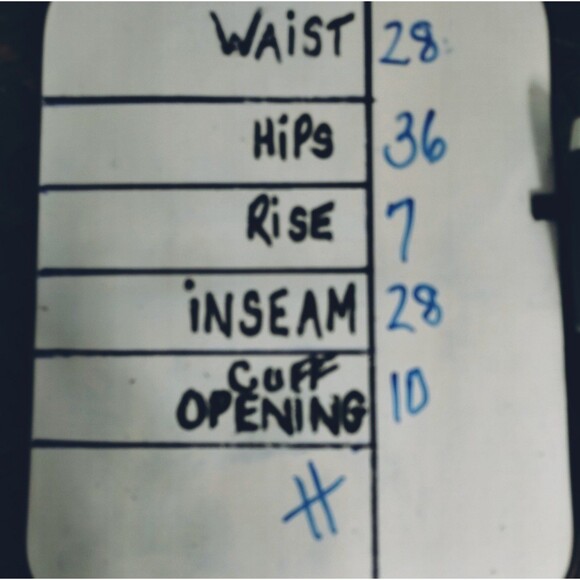 WAiST 28
HiPS 36
RiSE 7
iNSEAM 28
CUFF
OPENiNG 10
#